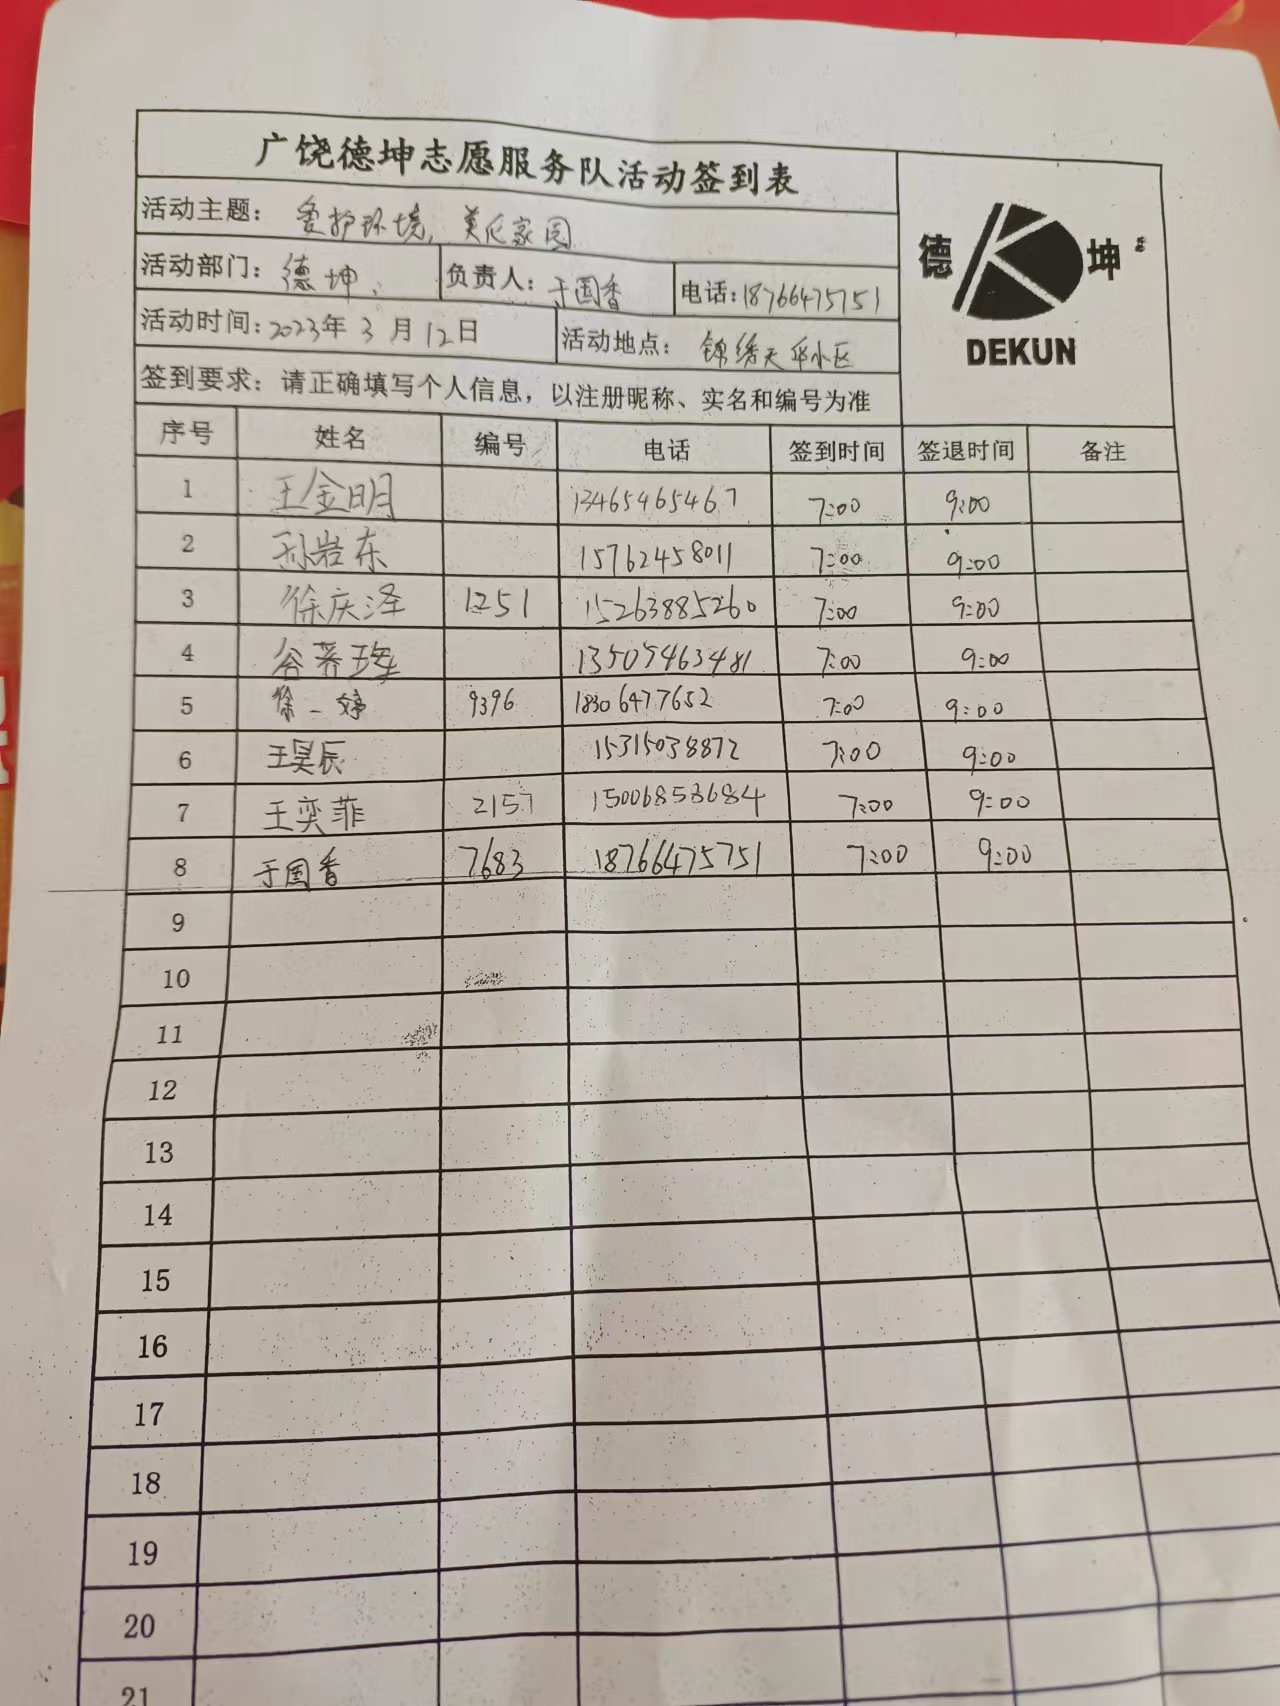 广饶德坤志愿服务队活动签到表
活动主题：爱护环境，美化家园
德 坤
DEKUN
活动部门：德坤、 负责人：于国香 电话：18766475751
活动时间：2023年 3 月 12 日 活动地点：锦绣天华小区
签到要求：请正确填写个人信息，以注册昵称、实名和编号为准
序号 姓名 编号 电话 签到时间 签退时间 备注
1 王金明 13465465467 7:00 9:00
2 孙岩东 15762458011 7:00 9:00
3 徐庆泽 1251 15263885260 7:00 9:00
4 谷 13505463481 7:00 9:00
5 徐一婷 9396 18306477652 7:00 9:00
6 王昊辰 15315038872 7:00 9:00
7 王奕菲 2157 15006853684 7:00 9:00
8 于国香 7683 18766475751 7:00 9:00
9
10
11
12
13
14
15
16
17
18
19
20
21